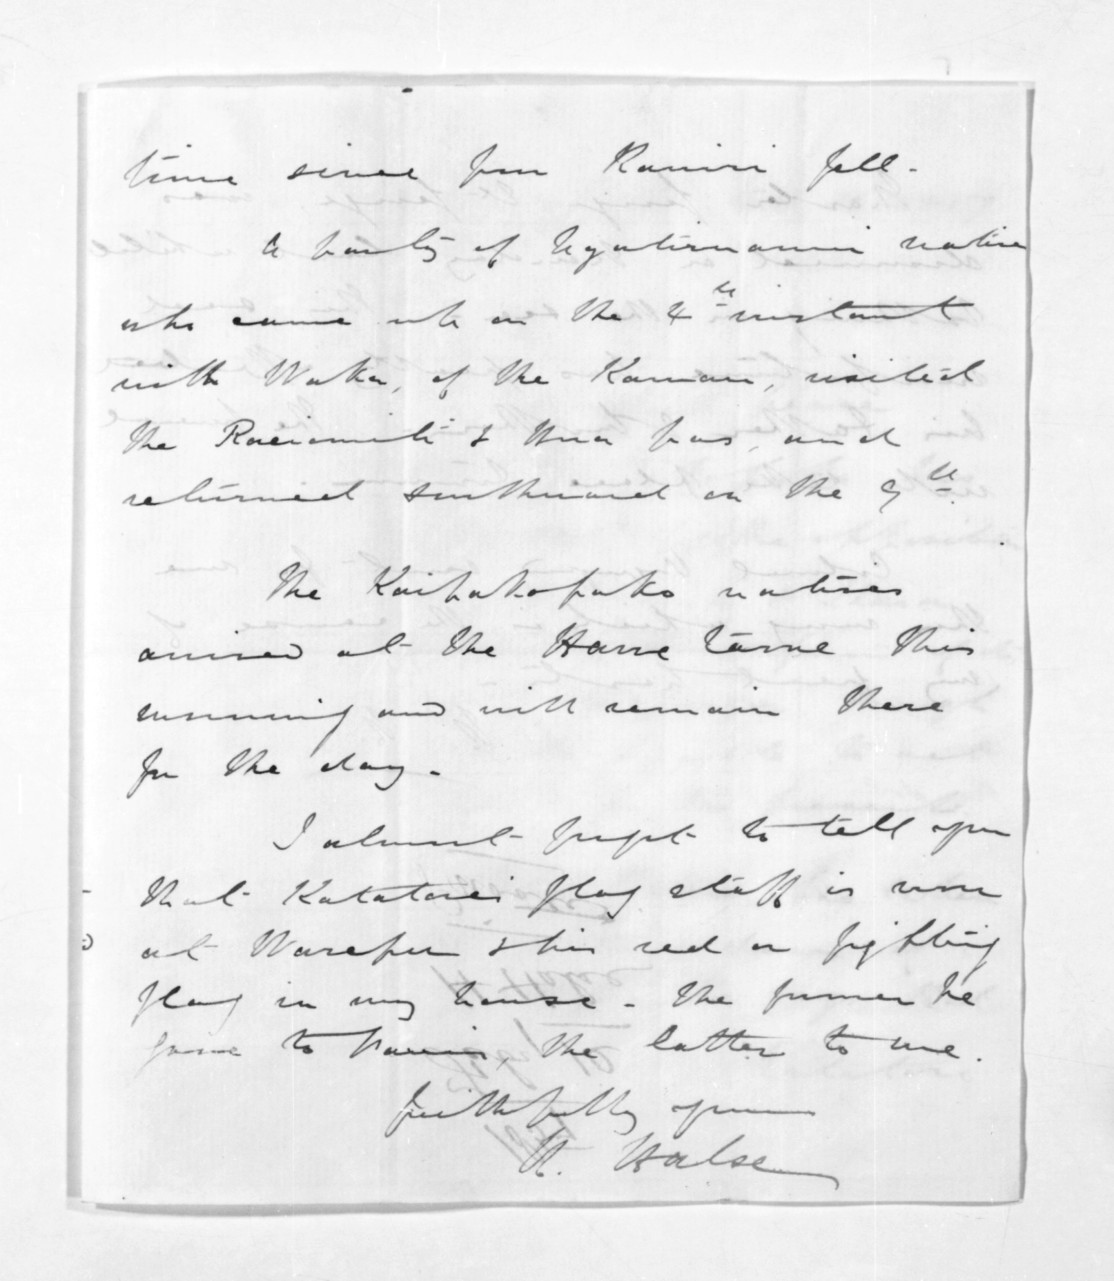 time since poor Rawiri fell.
A party of Ngatiruanui natives
who came up on the 4th instant
with Waka, of the Kamau, visited
the & Ihaia pas, and
returned southward on the 9th.
The Kaipakopako natives
arrived at the Hare Tawe this
morning and will remain there
for the day.
I almost forgot to tell you
that Katatore's flag staff is now
at Warepu & his red or fighting
flag in my house - The former he
gave to the latter to me.
faithfully yours
H. Halse